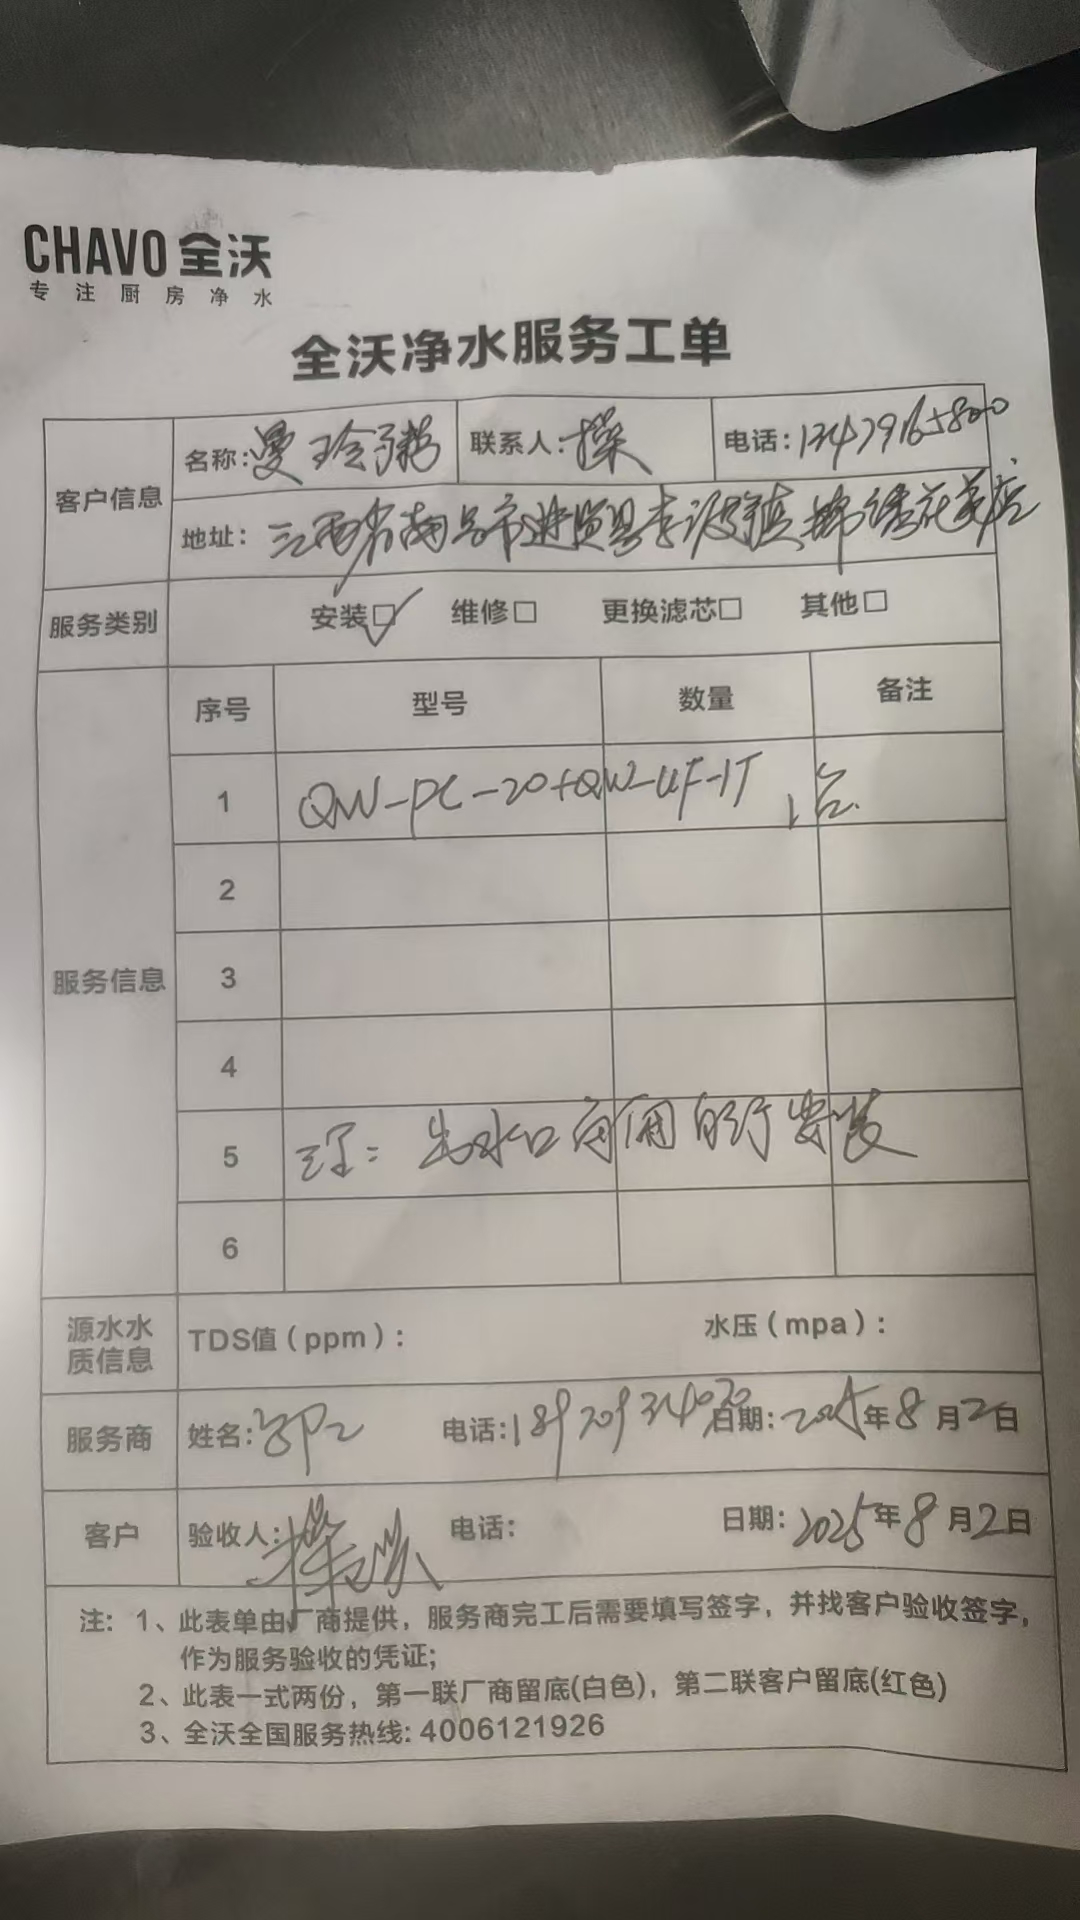 CHAVO 全沃
专注厨房净水
全沃净水服务工单
客户信息
名称:曼玲粥
联系人:操
电话:13479165800
地址:江西省南昌市进贤县李渡镇锦绣花苑店
服务类别
安装□ 维修□ 更换滤芯□ 其他□
服务信息
序号 型号 数量 备注
1 QW-PC-20+QW-UF-1T 1台
2
3
4
5 注: 出水口商用自行安装
6
源水水质信息
TDS值(ppm): 水压(mpa):
服务商
姓名: 电话:18970934070 日期:2025年8月2日
客户
验收人: 电话: 日期:2025年8月2日
注: 1、此表单由厂商提供，服务商完工后需要填写签字，并找客户验收签字，
作为服务验收的凭证;
2、此表一式两份，第一联厂商留底(白色)，第二联客户留底(红色)
3、全沃全国服务热线: 4006121926